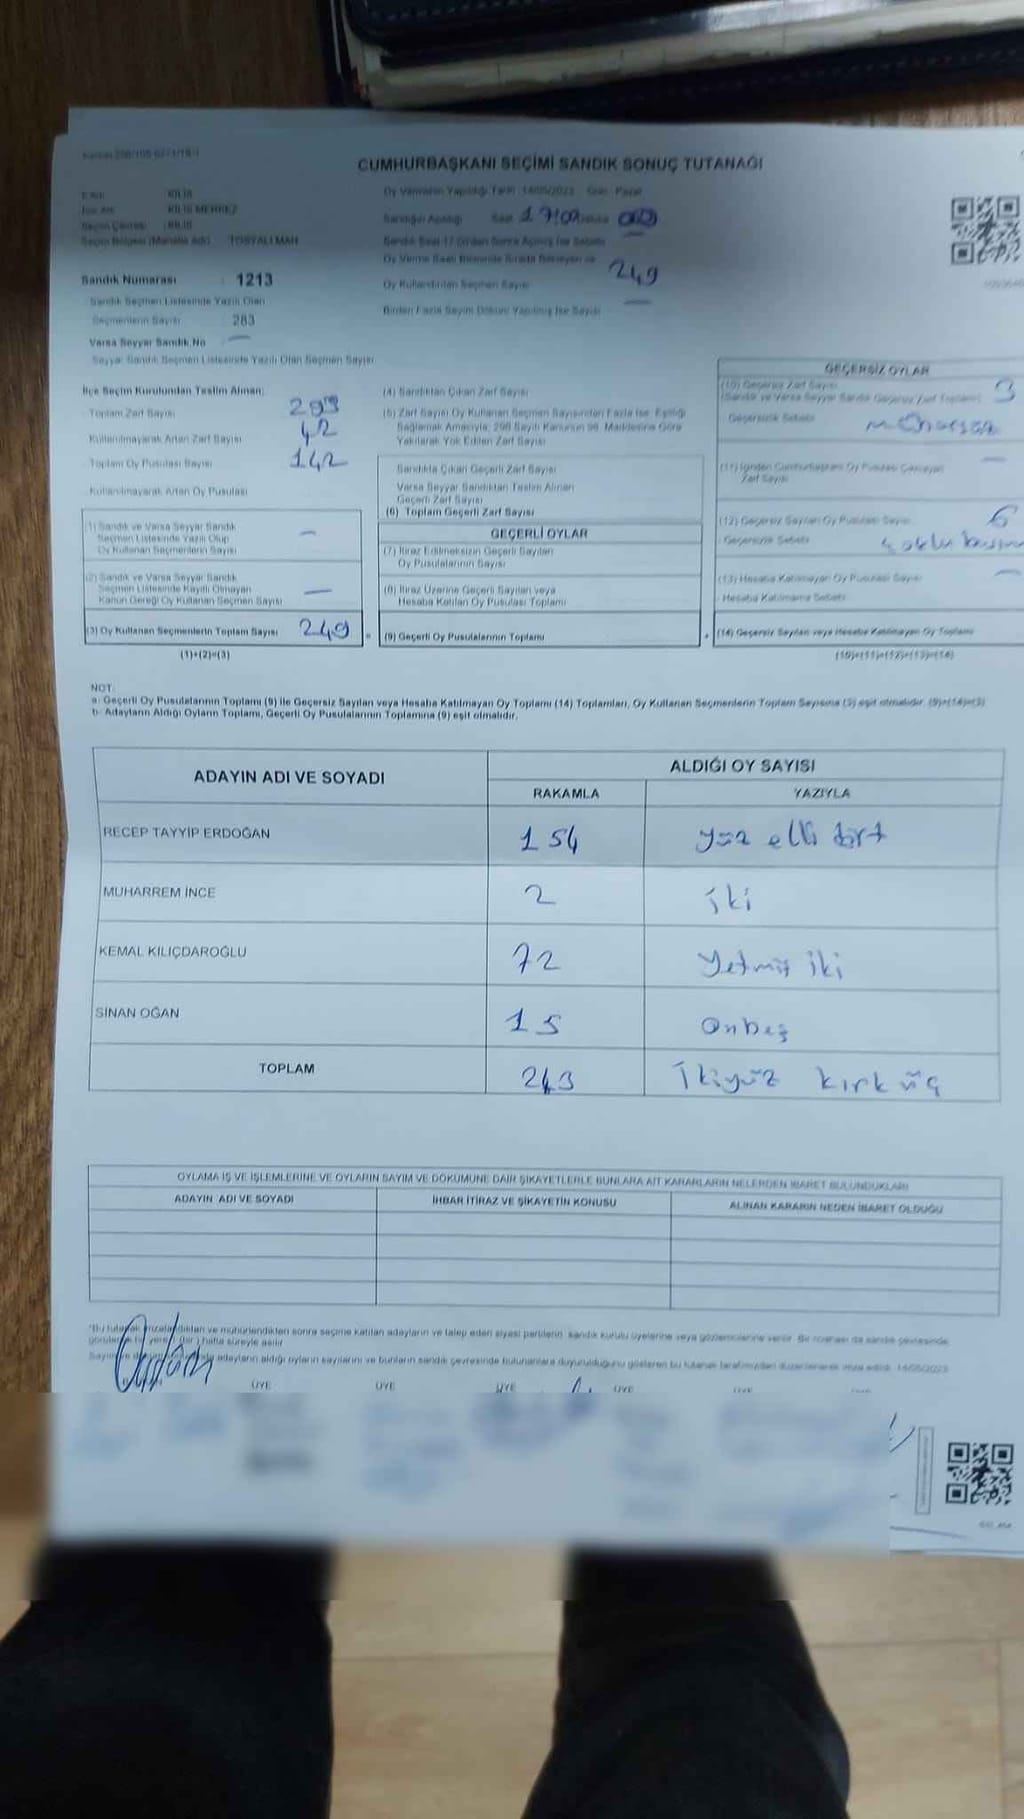 CUMHURBAŞKANI SEÇİMİ SANDIK SONUÇ TUTANAĞI
KİLİS
KİLİS MERKEZ
KİLİS
TOSYALI MAH
Oy Vermenin Yapıldığı Tarih 14/05/2023 Gün Pazar
Sandığın Açıldığı Saat 17:00
Oy Kullandırılan Seçmen Sayısı 249
Birden Fazla Sayım Döküm Yapılmış İse Sayısı —
Sandık Numarası : 1213
Sandık Seçmen Listesinde Yazılı Olan
Seçmenlerin Sayısı : 283
Varsa Seyyar Sandık No —
Seyyar Sandık Seçmen Listesinde Yazılı Olan Seçmen Sayısı
İlçe Seçim Kurulundan Teslim Alınan;
Toplam Zarf Sayısı
Kullanılmayarak Artan Zarf Sayısı 42
Toplam Oy Pusulası Sayısı 142
Kullanılmayarak Artan Oy Pusulası
(1) Sandık ve Varsa Seyyar Sandık
Seçmen Listesinde Yazılı Olup
Oy Kullanan Seçmenlerin Sayısı —
(2) Sandık ve Varsa Seyyar Sandık
Seçmen Listesinde Kayıtlı Olmayan
Kanun Gereği Oy Kullanan Seçmen Sayısı —
(3) Oy Kullanan Seçmenlerin Toplam Sayısı 249
(1)+(2)=(3)
(4) Sandıktan Çıkan Zarf Sayısı
(5) Zarf Sayısı Oy Kullanan Seçmen Sayısından Fazla İse; Eşitliği
Sağlamak Amacıyla; 298 Sayılı Kanunun 98. Maddesine Göre
Yakılarak Yok Edilen Zarf Sayısı
Sandıkta Çıkan Geçerli Zarf Sayısı
Varsa Seyyar Sandıktan Teslim Alınan
Geçerli Zarf Sayısı
(6) Toplam Geçerli Zarf Sayısı
GEÇERLİ OYLAR
(7) İtiraz Edilmeksizin Geçerli Sayılan
Oy Pusulalarının Sayısı
(8) İtiraz Üzerine Geçerli Sayılan veya
Hesaba Katılan Oy Pusulası Toplamı
= (9) Geçerli Oy Pusulalarının Toplamı
GEÇERSİZ OYLAR
(10) Geçersiz Zarf Sayısı 3
(Sandık ve Varsa Seyyar Sandık Geçersiz Zarf Toplamı)
Geçersizlik Sebebi
Zarf Sayısı —
(12) Geçersiz Sayılan Oy Pusulası Sayısı 6
Geçersizlik Sebebi
(13) Hesaba Katılmayan Oy Pusulası Sayısı —
Hesaba Katılmama Sebebi
+ (14) Geçersiz Sayılan veya Hesaba Katılmayan Oy Toplamı
(10)+(11)+(12)+(13)=(14)
NOT:
a- Geçerli Oy Pusulalarının Toplamı (9) İle Geçersiz Sayılan veya Hesaba Katılmayan Oy Toplamı (14) Toplamları, Oy Kullanan Seçmenlerin Toplam Sayısına (3) eşit olmalıdır. (9)+(14)=(3)
b- Adayların Aldığı Oyların Toplamı, Geçerli Oy Pusulalarının Toplamına (9) eşit olmalıdır.
ADAYIN ADI VE SOYADI
ALDIĞI OY SAYISI
RAKAMLA YAZIYLA
RECEP TAYYİP ERDOĞAN 154 yüz elli dört
MUHARREM İNCE 2 iki
KEMAL KILIÇDAROĞLU 72 yetmiş iki
SİNAN OĞAN 15 onbeş
TOPLAM 243 ikiyüz kırk üç
OYLAMA İŞ VE İŞLEMLERİNE VE OYLARIN SAYIM VE DÖKÜMÜNE DAİR ŞİKAYETLERLE BUNLARA AİT KARARLARIN NELERDEN İBARET BULUNDUKLARI
ADAYIN ADI VE SOYADI İHBAR İTİRAZ VE ŞİKAYETİN KONUSU ALINAN KARARIN NEDEN İBARET OLDUĞU
mühürlendikten sonra seçime katılan adayların ve talep eden siyasi partilerin sandık kurulu üyelerine veya gözlemcilerine verilir. Bir nüshası da sandık çevresinde
(bir) hafta süreyle asılır
adayların aldığı oyların sayılarını ve bunların sandık çevresinde bulunanlara duyurulduğunu gösteren bu tutanak tarafımızdan düzenlenerek imza edildi. 14/05/2023
ÜYE ÜYE ÜYE ÜYE